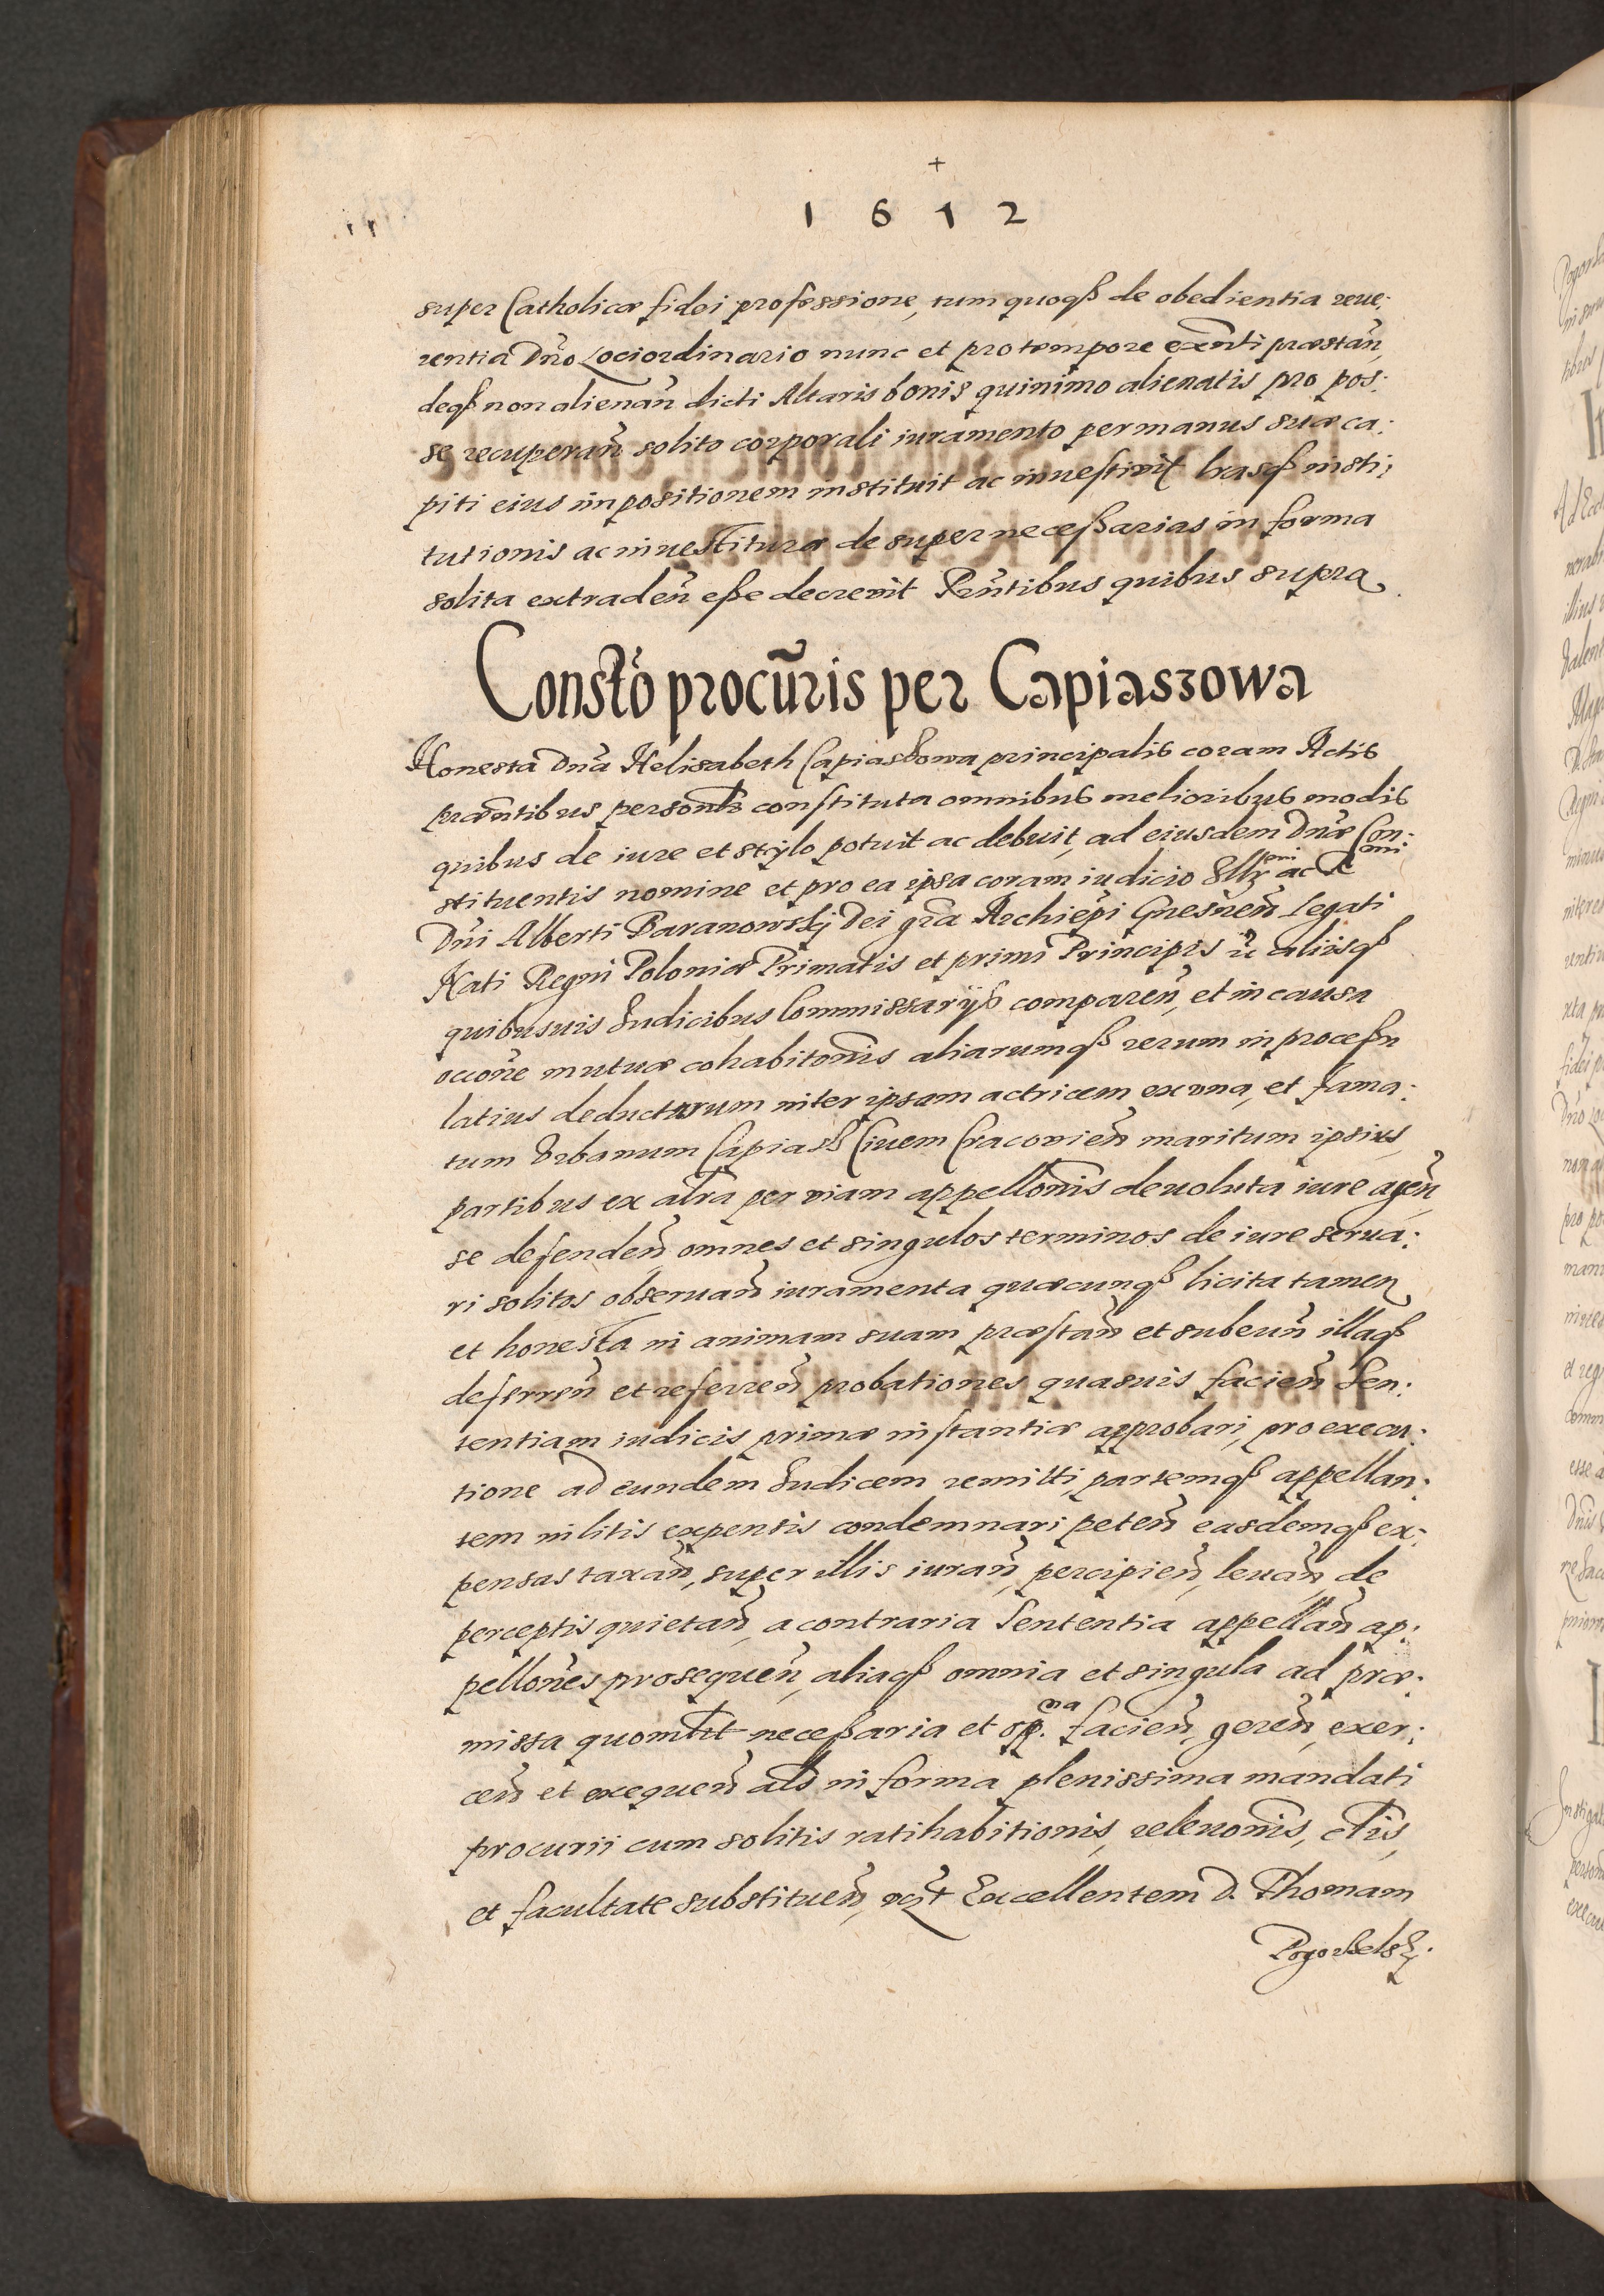 +
1612
super Catholicæ fidei professione, tum quoqß de obedientia reue:
rentia Dño Lociordinario nunc et pro tempore exñti præstañ,
deqß non alienañ dicti Altaris bonis quinimo alienatis pro pos:
se recuperañ solito corporali iuramento per manus suæ ca:
piti eius impositionem instituit ac inuestivit lrasqß insti:
tutionis ac inuestituræ de super necessarias in forma
solita extradeñ esse decrevit Pñtibus quibus supra.
Constõ procũris per Capiaszowa
Honesta Dña Helisabeth Capiaszowa principalis coram Actis
præñtibus personlr constituta omnibus melioribus modis
quibus de iure et stylo potuit ac debuit, ad eiusdem Dñæ Con:
stituentis nomine et pro ea ipsa coram iudicio Illr̃mi ac R̃mi
Dñi Alberti Baranowskj Dei gr̃a Archiep̃i Gnesneñ Legati
Nati Regni Poloniæ Primatis et primi Principis &c aliisqß
quibusuis Iudicibus Commissarijs compareñ, et in causa
occõne mutuæ cohabitõnis aliarumqß rerum in processu
latius deductarum inter ipsam actricem ex una, et fama:
tum Vrbanum Capiasz Ciuem Cracovieñ maritum ipsius
partibus ex alt̃ra per viam appellõnis devoluta iure ageñ
se defendeñ, omnes et singulos terminos de iure serua:
ri solitos obseruañ iuramenta quæcunqß licita tamen
et honesta in animam suam præstañ et subeuñ illaqß
deferreñ et referreñ probationes quasuis facieñ Sen:
tentiam iudicis primæ instantiæ approbari, pro execu:
tione ad eundem Iudicem remitti, partemqß appellan:
tem in litis expensis condemnari peteñ easdemqß ex:
pensas taxañ, super illis iurañ, percipieñ, levañ, de
perceptis quietañ, a contraria Sententia appellañ ap:
pellõnes prosequeñ, aliaqß omnia et singula ad præ:
missa quomlt necessaria et opp.na facieñ, gereñ, exer:
ceñ et exequeñ als in forma plenissima mandati
procurii cum solitis ratihabitionis, relevõnis, clis,
et facultate substitueñ, Excellentem D. Thomam
Pogorzelskj.